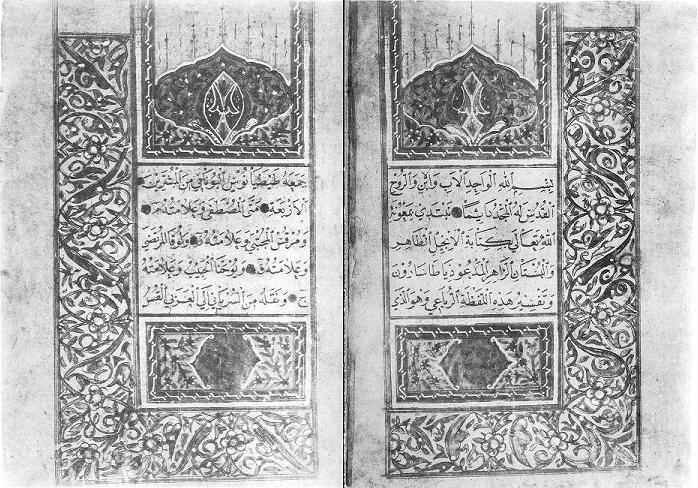 بسم الله الواحد الاب والابن والروح
القدس له المجد دائما نبتدى بمعونة
الله تعالى كتابة الانجيل الطاهر
والبستان الزاهر المدعو ذياطاسارون
وتفسير هذه اللفظة الرباعي وهو الذي
جمعه طيطيانوس اليوناني من المبشرين
الاربعة متى المصطفى وعلامته م
ومرقس المجتبى وعلامته ر ولوقا المرتضى
وعلامته ق ويوحنا الحبيب وعلامته
ح ونقله من السرياني الى العربي القس